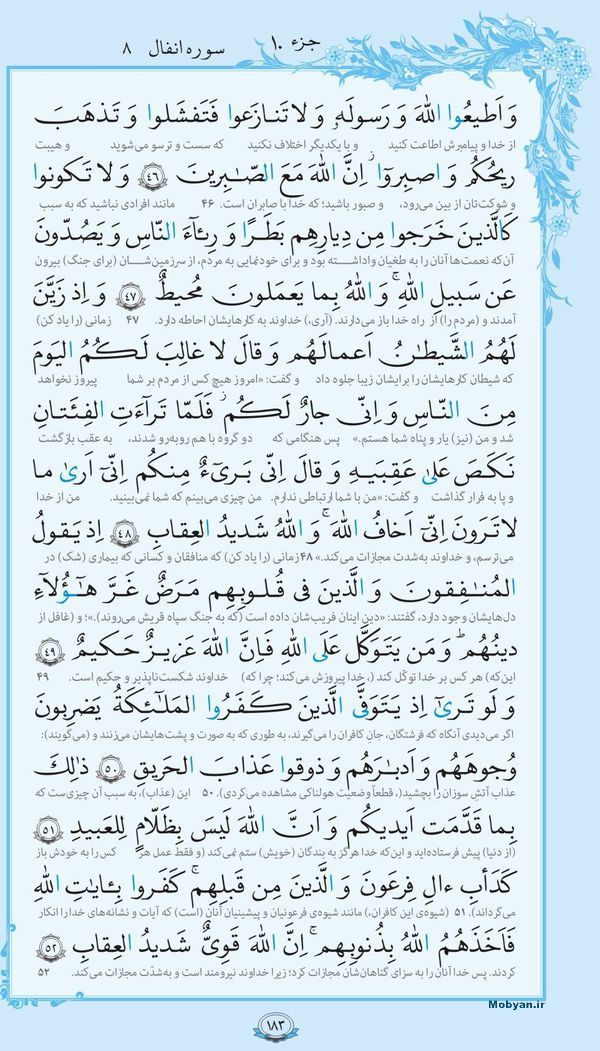 جزء ۱۰
سوره انفال ۸
وَ اَطیعُوا اللهَ وَ رَسولَهٗ وَ لا تَنازَعوا فَتَفشَلوا وَ تَذهَبَ
از خدا و پیامبرش اطاعت کنید و با یکدیگر اختلاف نکنید که سست و ترسو می‌شوید و هیبت
ریحُکُم وَ اصبِروا اِنَّ اللهَ مَعَ الصّٰبِرینَ ﴿۴۶﴾ وَ لا تَکونوا
و شوکت‌تان از بین می‌رود، و صبور باشید؛ که خدا با صابران است. ۴۶ مانند افرادی نباشید که به سبب
کَالَّذینَ خَرَجوا مِن دِیارِهِم بَطَرًا وَ رِئاءَ النّاسِ وَ یَصُدّونَ
آن‌که نعمت‌ها آنان را به طغیان واداشته بود و برای خودنمایی به مردم، از سرزمین‌شان (برای جنگ) بیرون
عَن سَبیلِ اللهِ ۚ وَ اللهُ بِما یَعمَلونَ مُحیطٌ ﴿۴۷﴾ وَ اِذ زَیَّنَ
آمدند و (مردم را) از راه خدا باز می‌دارند. (آری،) خداوند به کارهایشان احاطه دارد. ۴۷ زمانی (را یاد کن)
لَهُمُ الشَّیطٰنُ اَعمالَهُم وَ قالَ لا غالِبَ لَکُمُ الیَومَ
که شیطان کارهایشان را برایشان زیبا جلوه داد و گفت: «امروز هیچ کس از مردم بر شما پیروز نخواهد
مِنَ النّاسِ وَ اِنّی جارٌ لَکُم ۖ فَلَمّا تَرآءَتِ الفِئَتانِ
شد و من (نیز) یار و پناه شما هستم.» پس هنگامی که دو گروه با هم روبه‌رو شدند، به عقب بازگشت
نَکَصَ عَلیٰ عَقِبَیهِ وَ قالَ اِنّی بَریءٌ مِنکُم اِنّی اَریٰ ما
و پا به فرار گذاشت و گفت: «من با شما ارتباطی ندارم. من چیزی می‌بینم که شما نمی‌بینید. من از خدا
لا تَرَونَ اِنّی اَخافُ اللهَ ۚ وَ اللهُ شَدیدُ العِقابِ ﴿۴۸﴾ اِذ یَقولُ
می‌ترسم، و خداوند به‌شدت مجازات می‌کند.» ۴۸ زمانی (را یاد کن) که منافقان و کسانی که بیماری (شک) در
المُنٰفِقونَ وَ الَّذینَ فی قُلوبِهِم مَرَضٌ غَرَّ هٰؤُلاءِ
دل‌هایشان وجود دارد، گفتند: «دین اینان فریب‌شان داده است (که به جنگ سپاه قریش می‌روند).»؛ و (غافل از
دینُهُم ۗ وَ مَن یَتَوَکَّل عَلَی اللهِ فَاِنَّ اللهَ عَزیزٌ حَکیمٌ ﴿۴۹﴾
این‌که) هر کس بر خدا توکّل کند (، خدا پیروزش می‌کند؛ چرا که) خداوند شکست‌ناپذیر و حکیم است. ۴۹
وَ لَو تَریٰ اِذ یَتَوَفَّی الَّذینَ کَفَرُوا المَلٰئِکَةُ یَضرِبونَ
اگر می‌دیدی آنگاه که فرشتگان، جان کافران را می‌گیرند، به طوری که به صورت و پشت‌هایشان می‌زنند و (می‌گویند):
وُجوهَهُم وَ اَدبٰرَهُم وَ ذوقوا عَذابَ الحَریقِ ﴿۵۰﴾ ذٰلِکَ
عذاب آتش سوزان را بچشید(، قطعاً وضعیت هولناکی مشاهده می‌کردی). ۵۰ این (عذاب)، به سبب آن چیزی‌ست که
بِما قَدَّمَت اَیدیکُم وَ اَنَّ اللهَ لَیسَ بِظَلّامٍ لِلعَبیدِ ﴿۵۱﴾
(از دنیا) پیش فرستاده‌اید و این‌که خدا هرگز به بندگان (خویش) ستم نمی‌کند (و فقط عمل هر کس را به خودش باز
کَدَأبِ ءالِ فِرعَونَ وَ الَّذینَ مِن قَبلِهِم ۚ کَفَروا بِـٔایٰتِ اللهِ
می‌گرداند). ۵۱ (شیوه‌ی این کافران،) مانند شیوه‌ی فرعونیان و پیشینیان آنان (است) که آیات و نشانه‌های خدا را انکار
فَاَخَذَهُمُ اللهُ بِذُنوبِهِم ۚ اِنَّ اللهَ قَویٌّ شَدیدُ العِقابِ ﴿۵۲﴾
کردند. پس خدا آنان را به سزای گناهان‌شان مجازات کرد؛ زیرا خداوند نیرومند است و به‌شدّت مجازات می‌کند. ۵۲
Mobyan.ir
۱۸۳